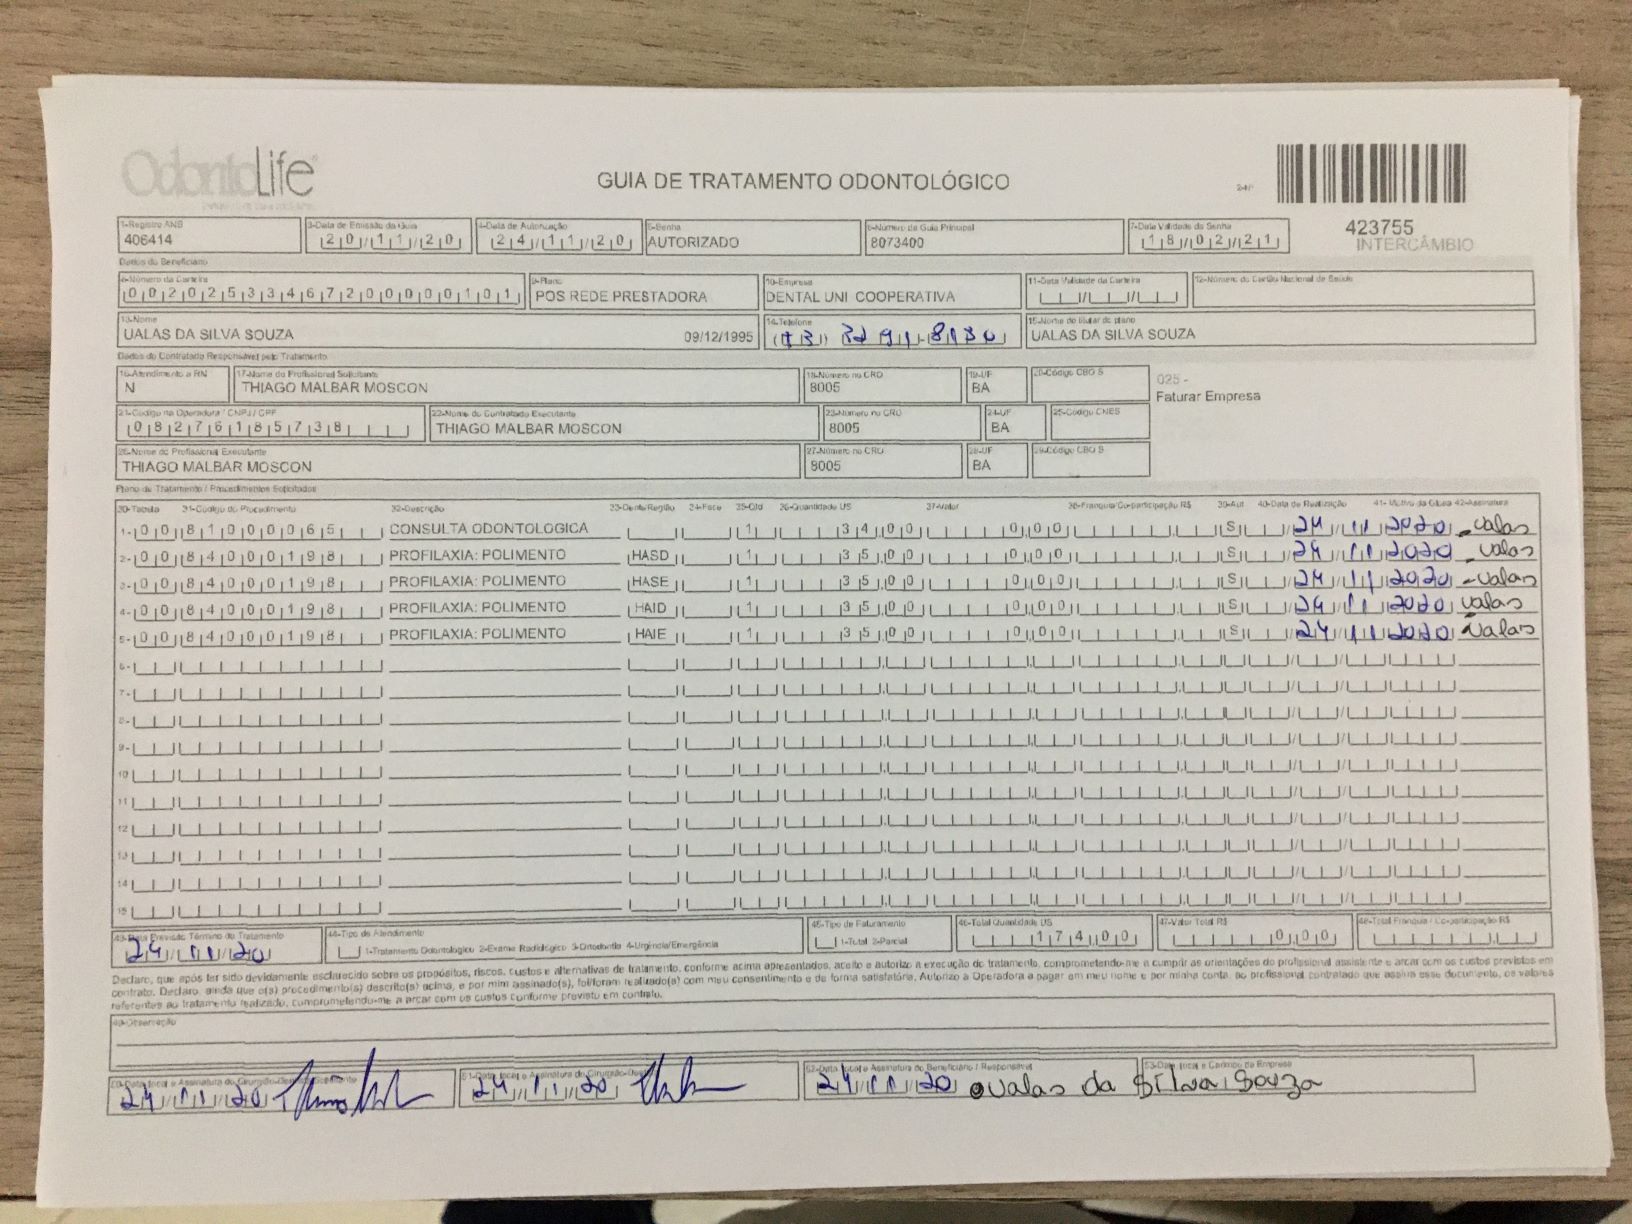 OdontoLife
GUIA DE TRATAMENTO ODONTOLÓGICO
2-Nº
423755
INTERCÂMBIO
1-Registro ANS 3-Data de Emissão da Guia 4-Data de Autorização 5-Senha 6-Número da Guia Principal 7-Data Validade da Senha
406414 20/11/20 24/11/20 AUTORIZADO 8073400 18/02/21
Dados do Beneficiário
8-Número da Carteira 9-Plano 10-Empresa 11-Data Validade da Carteira 12-Número do Cartão Nacional de Saúde
00202533467200000101 POS REDE PRESTADORA DENTAL UNI COOPERATIVA
13-Nome 14-Telefone 15-Nome do titular do plano
UALAS DA SILVA SOUZA 09/12/1995 UALAS DA SILVA SOUZA
Dados do Contratado Responsável pelo Tratamento
16-Atendimento a RN 17-Nome do Profissional Solicitante 18-Número no CRO 19-UF 20-Código CBO S
N THIAGO MALBAR MOSCON 8005 BA
025 -
Faturar Empresa
21-Código na Operadora / CNPJ / CPF 22-Nome do Contratado Executante 23-Número no CRO 24-UF 25-Código CNES
08276185738 THIAGO MALBAR MOSCON 8005 BA
26-Nome do Profissional Executante 27-Número no CRO 28-UF 29-Código CBO S
THIAGO MALBAR MOSCON 8005 BA
Plano de Tratamento / Procedimentos Solicitados
30-Tabela 31-Código do Procedimento 32-Descrição 33-Dente/Região 34-Face 35-Qtd 36-Quantidade US 37-Valor 38-Franquia/Co-participação R$ 39-Aut 40-Data de Realização 41-Motivo da Glosa 42-Assinatura
1- 00 81000065 CONSULTA ODONTOLOGICA 1 34,00 0,00 S 24/11/2020 Ualas
2- 00 84000198 PROFILAXIA: POLIMENTO HASD 1 35,00 0,00 S 24/11/2020 Ualas
3- 00 84000198 PROFILAXIA: POLIMENTO HASE 1 35,00 0,00 S 24/11/2020 Ualas
4- 00 84000198 PROFILAXIA: POLIMENTO HAID 1 35,00 0,00 S 24/11/2020 Ualas
5- 00 84000198 PROFILAXIA: POLIMENTO HAIE 1 35,00 0,00 S 24/11/2020 Ualas
6-
7-
8-
9-
10
11
12
13
14
15
43-Data Previsão Término do Tratamento 44-Tipo de Atendimento 45-Tipo de Faturamento 46-Total Quantidade US 47-Valor Total R$ 48-Total Franquia / Co-participação R$
24/11/20 1-Tratamento Odontológico 2-Exame Radiológico 3-Ortodontia 4-Urgência/Emergência 1-Total 2-Parcial 174,00 0,00
Declaro, que após ter sido devidamente esclarecido sobre os propósitos, riscos, custos e alternativas de tratamento, conforme acima apresentados, aceito e autorizo a execução do tratamento, comprometendo-me a cumprir as orientações do profissional assistente e arcar com os custos previstos em
contrato. Declaro, ainda que o(s) procedimento(s) descrito(s) acima, e por mim assinado(s), foi/foram realizado(s) com meu consentimento e de forma satisfatória. Autorizo a Operadora a pagar em meu nome e por minha conta, ao profissional contratado que assina esse documento, os valores
referentes ao tratamento realizado, comprometendo-me a arcar com os custos conforme previsto em contrato.
49-Observação
50-Data, local e Assinatura do Cirurgião-Dentista Solicitante 51-Data, local e Assinatura do Cirurgião-Dentista 52-Data, local e Assinatura do Beneficiário / Responsável 53-Data, local e Carimbo da Empresa
24/11/20 24/11/20 24/11/20 Ualas da Silva Souza